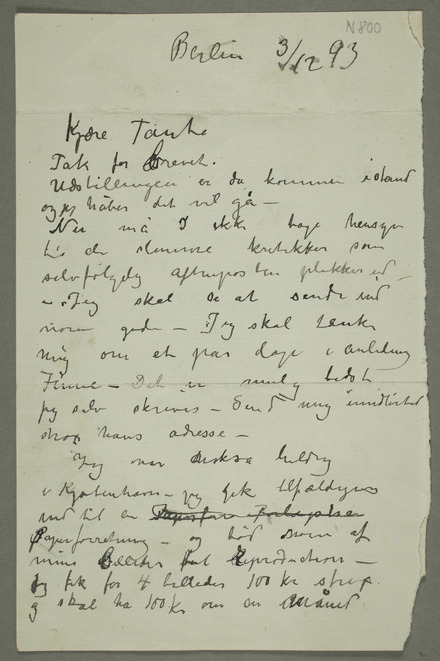 N 800
Berlin 3/12 93
Kjære Tante
Tak for Brevet.
Udstillingen er da kommen istand
og jeg håber det vil gå –
Nu må I ikke tage hensyn
til de slemme kritikker som
selvfølgelig aftenposten plukker ud
– Jeg skal se at sende ind
noen gode – Jeg skal tænke
mig om et par dage i anledning
– Det er muligt bedst
jeg selv skriver – Send mig imidlertid
strax hans adresse –
Jeg var også heldig
i Kjøbenhavn – jeg gik tilfældigvis
ind til en
Papirforretning – og bød noen af
mine Billeder til Reproduction –
Jeg fik for 4 billeder 100 kr strax
og skal ha 100 kr om en Måned